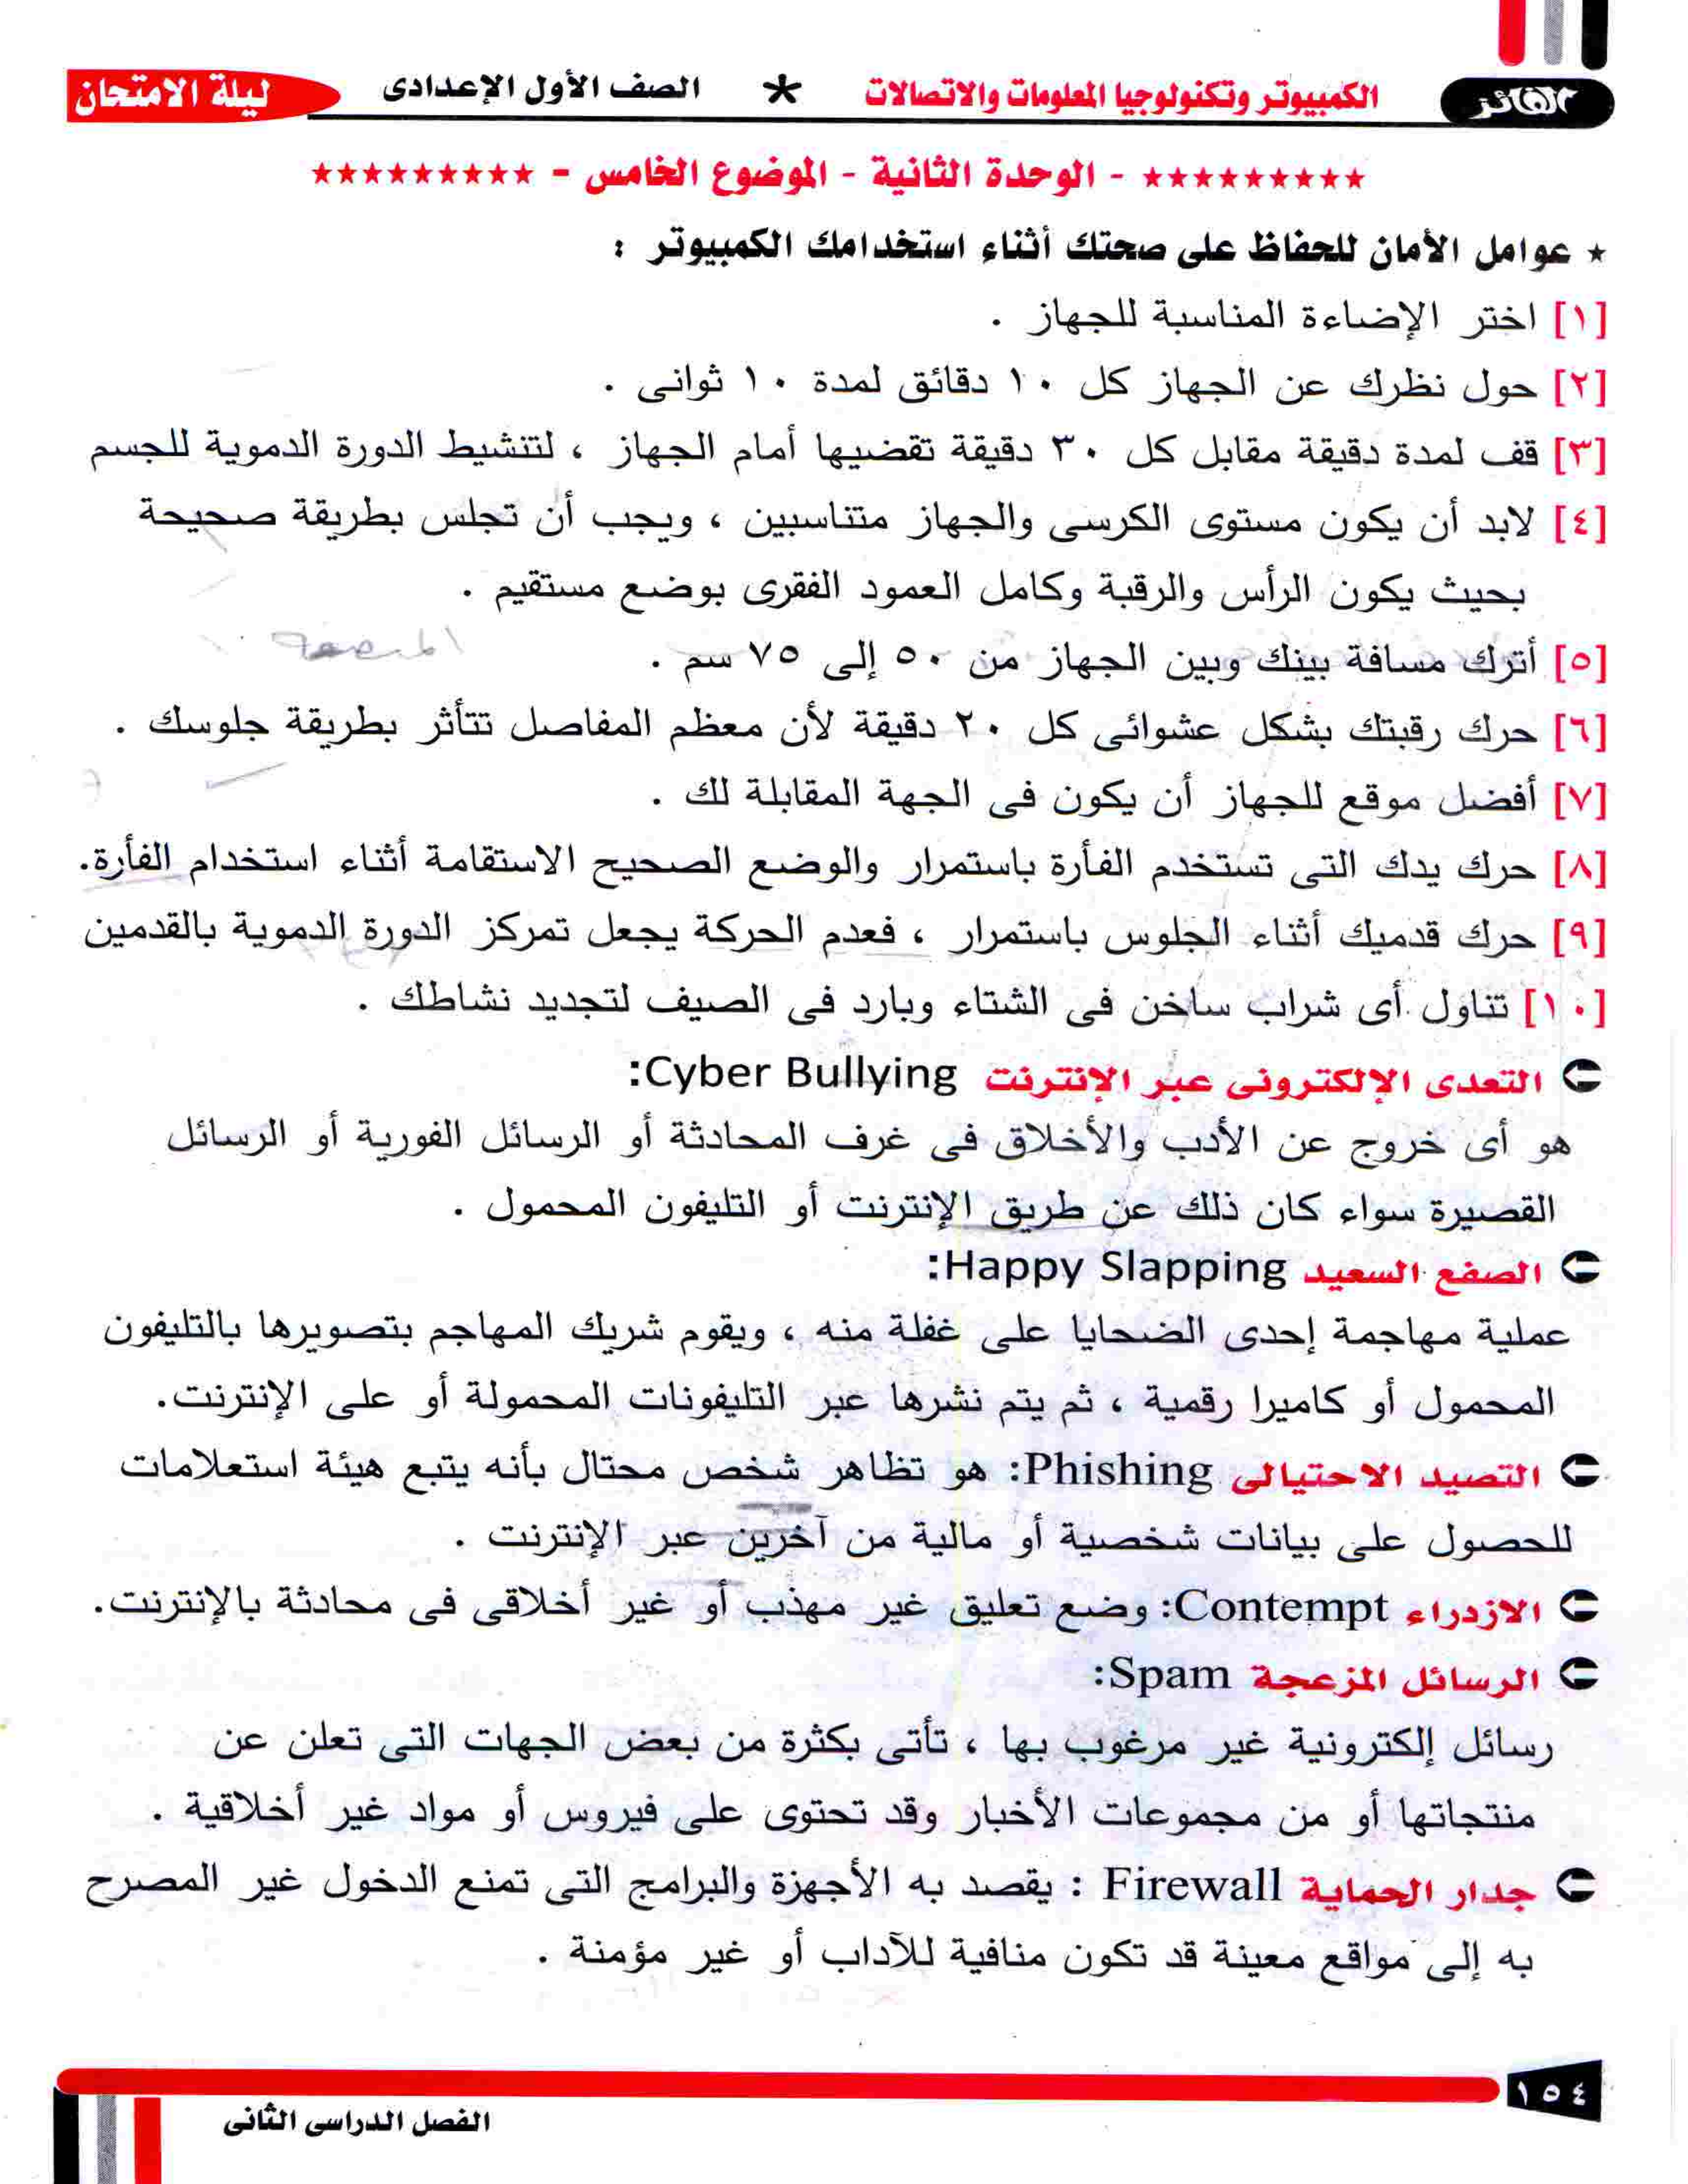 الفائز
الكمبيوتر وتكنولوجيا المعلومات والاتصالات * الصف الأول الإعدادى
ليلة الامتحان
********* - الوحدة الثانية - الموضوع الخامس - *********
* عوامل الأمان للحفاظ على صحتك أثناء استخدامك الكمبيوتر :
[١] اختر الإضاءة المناسبة للجهاز .
[٢] حول نظرك عن الجهاز كل ١٠ دقائق لمدة ١٠ ثوانى .
[٣] قف لمدة دقيقة مقابل كل ٣٠ دقيقة تقضيها أمام الجهاز ، لتنشيط الدورة الدموية للجسم
[٤] لابد أن يكون مستوى الكرسى والجهاز متناسبين ، ويجب أن تجلس بطريقة صحيحة
بحيث يكون الرأس والرقبة وكامل العمود الفقرى بوضع مستقيم .
[٥] أترك مسافة بينك وبين الجهاز من ٥٠ إلى ٧٥ سم .
[٦] حرك رقبتك بشكل عشوائى كل ٢٠ دقيقة لأن معظم المفاصل تتأثر بطريقة جلوسك .
[٧] أفضل موقع للجهاز أن يكون فى الجهة المقابلة لك .
[٨] حرك يدك التى تستخدم الفأرة باستمرار والوضع الصحيح الاستقامة أثناء استخدام الفأرة.
[٩] حرك قدميك أثناء الجلوس باستمرار ، فعدم الحركة يجعل تمركز الدورة الدموية بالقدمين
[١٠] تناول أى شراب ساخن فى الشتاء وبارد فى الصيف لتجديد نشاطك .
التعدى الإلكترونى عبر الإنترنت Cyber Bullying:
هو أى خروج عن الأدب والأخلاق فى غرف المحادثة أو الرسائل الفورية أو الرسائل
القصيرة سواء كان ذلك عن طريق الإنترنت أو التليفون المحمول .
الصفع السعيد Happy Slapping:
عملية مهاجمة إحدى الضحايا على غفلة منه ، ويقوم شريك المهاجم بتصويرها بالتليفون
المحمول أو كاميرا رقمية ، ثم يتم نشرها عبر التليفونات المحمولة أو على الإنترنت.
التصيد الاحتيالى Phishing: هو تظاهر شخص محتال بأنه يتبع هيئة استعلامات
للحصول على بيانات شخصية أو مالية من آخرين عبر الإنترنت .
الازدراء Contempt: وضع تعليق غير مهذب أو غير أخلاقى فى محادثة بالإنترنت.
الرسائل المزعجة Spam:
رسائل إلكترونية غير مرغوب بها ، تأتى بكثرة من بعض الجهات التى تعلن عن
منتجاتها أو من مجموعات الأخبار وقد تحتوى على فيروس أو مواد غير أخلاقية .
جدار الحماية Firewall : يقصد به الأجهزة والبرامج التى تمنع الدخول غير المصرح
به إلى مواقع معينة قد تكون منافية للآداب أو غير مؤمنة .
١٥٤
الفصل الدراسى الثانى